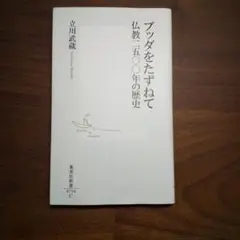 ブッダをたずねて
仏教二五〇〇年の歴史
立川武蔵
集英社新書